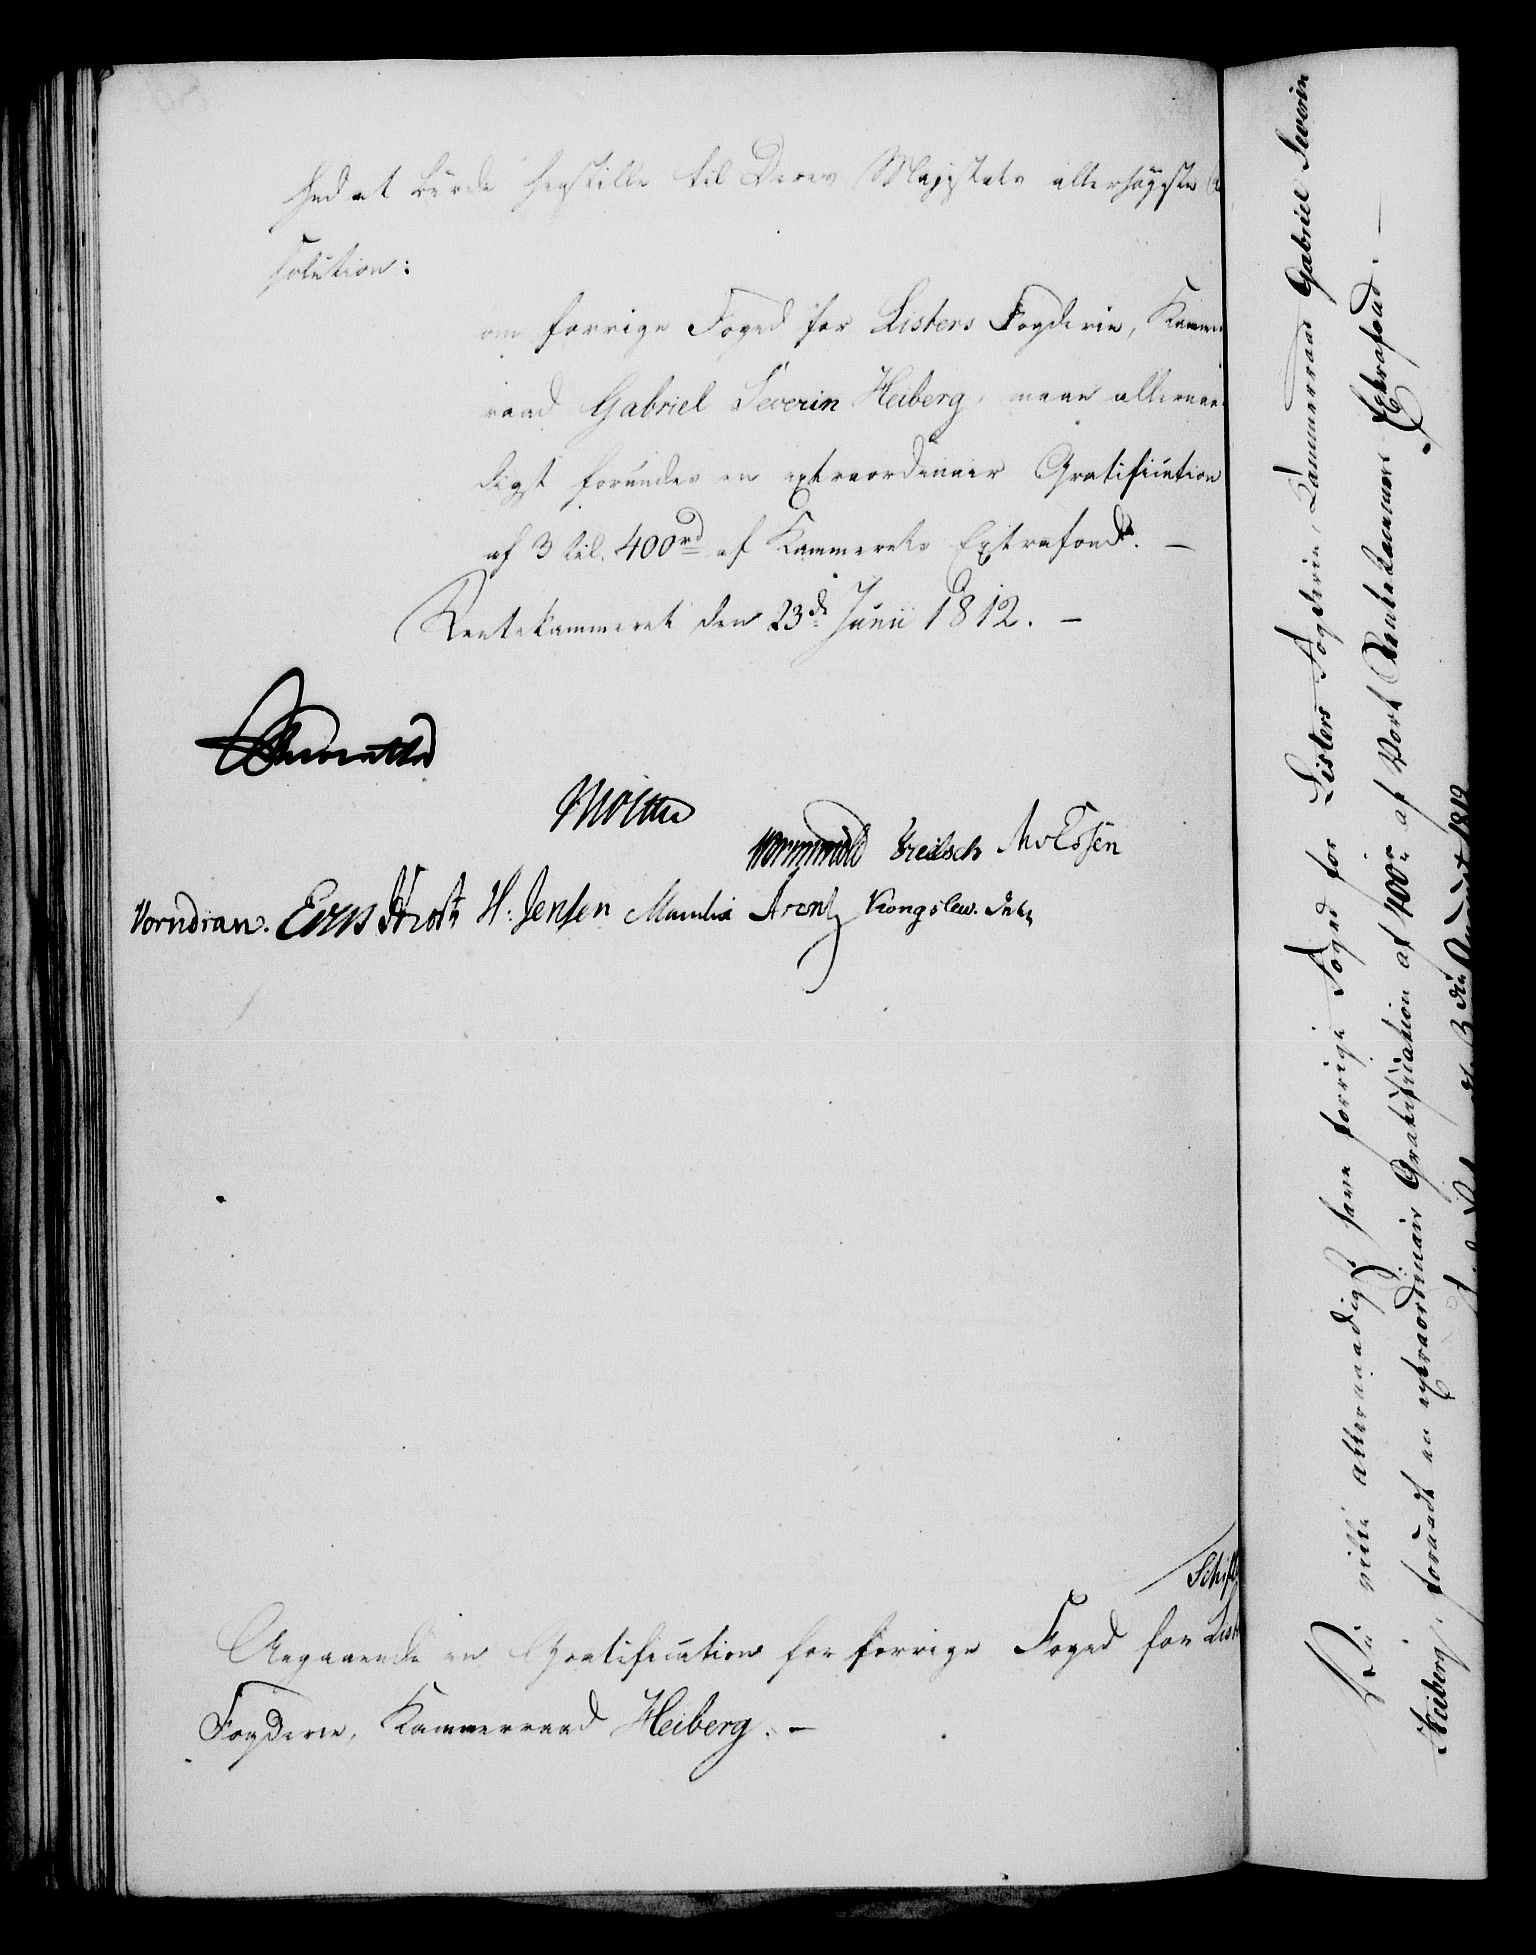 hed at burde henstille til Deres Majestæts allerhøyeste
solution:
om forrige Foged for Listers Fogderie, Kammer
raad Gabriel Severin Heiberg, maae allernaa
digst forundes en extraordinair Gratification
af 3 til 400rd af Kammerets Extrafond. —
Rentekammeret den 23de Junii 1812. —
Moltke
Wormskiold MvEssen
Vorndran. H: Jensen Manthei Arentz Kongslew.
Schift
Angaaende en Gratification for forrige Foged for List
Fogderie, Kammerraad Heiberg. —
Vi ville allernaadigst have forrige Foged for Listers Fogderie, Kammerraad Gabriel Severin
Heiberg, forundt en extraordinair Gratification af 400rd af Vort Rentekammers Extrafond. —
August 1812